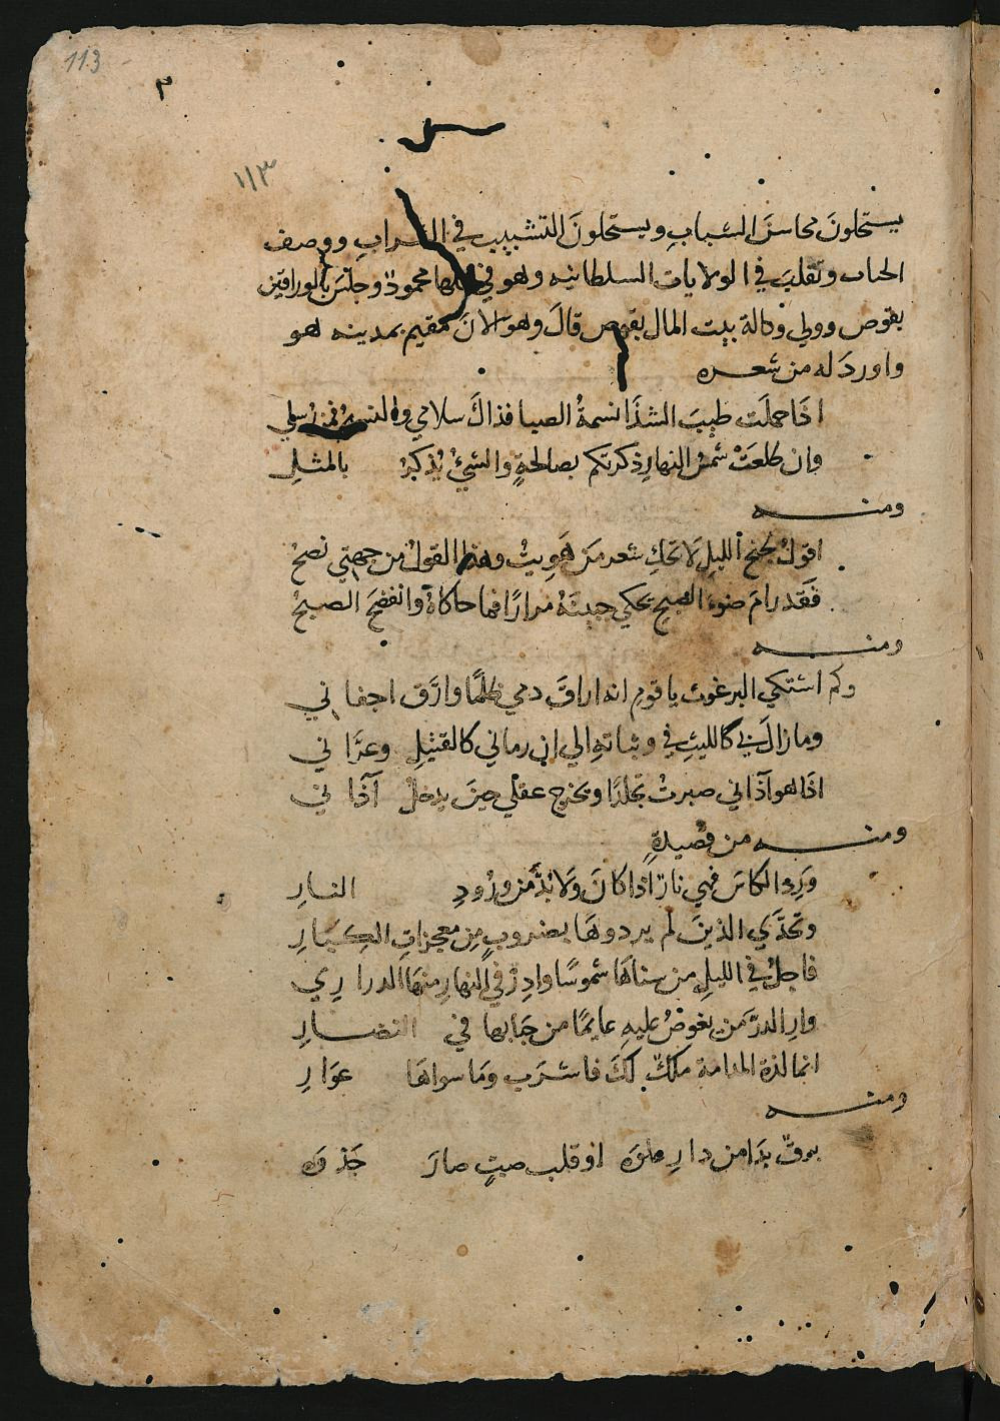 113
٣
١١٣
يستحلون محاسنَ الشبابِ ويستحلونَ التشبيب في الشرابِ ووصف
الحباب وتقلبَ في الولايات السلطانيه وهو في محمودٌ وجلسَ بالوراقين
بقوص وولي وكالة بيت المال بقوص قالَ وهو الانَ مقيم بمدينه هو
واوردَ له من شعره
اذَا حملَت طيبَ الشذَا نسمةُ الصبا فذاكَ سلامي والنسيمُ فمن رُسلي
وان طلعَتْ شمسُ النهارِ ذكرتكم بصالحةٍ والشيءُ يُذكرُ بالمثلِ
ومنه
اقولُ لجنح الليلِ لَا تَحكِ شعر مَن هَوِيتُ وهذا القولُ من جهتي نصحُ
فَقَد رامَ ضوءُ الصبحِ يحكي جبينَهُ مرارًا فما حاكاهُ وانفضحَ الصبحُ
ومنه
وكم اشتكي البرغوث يا قومِ انه اراقَ دمي ظلمًا وارّق اجفاني
ومازالَ بي كالليثِ في وثباته الي ان رماني كالقتيلِ وعرَّاني
اذَا هو آذاني صبرتُ تجلدًا ويخرج عقلي حينَ يدخلُ آذاني
ومنه من قصيدةٍ
ورِدِ الكاسَ فهي نار اذا كانَ ولَا بُدَّ من ورُودِ النارِ
وتحدَّي الذينَ لم يردوهَا بضروبٍ مِن معجزاتِ الكِبَارِ
فاجلُ في الليلِ من سناهَا شموسًا وادِرْ في النهارِ منهَا الدراري
وارِ الدرَّ من يغوصُ عليهِ عايمًا من حَبابها في النضارِ
انما لذة المدامة ملكٌ لكَ فاشرَب ومَا سواهَا عوَارِ
ومنه
برقٌ بدَا من دارِ علوَه او قلب صبٍّ صارَ جَذوه